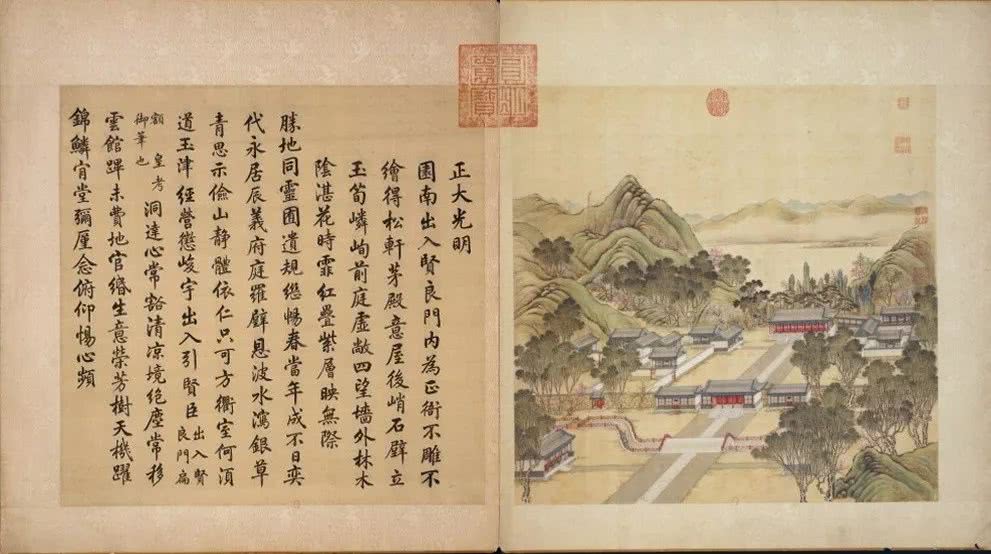 正大光明
園南出入賢良門內為正衙不雕不
繪得松軒茅殿意屋後峭石壁立
玉筍嶙峋前庭虛敞四望墻外林木
陰湛花時霏紅疊紫層映無際
勝地同靈囿遺規繼暢春當年成不日奕
代永居辰義府庭羅壁恩波水瀉銀草
青思示儉山静體依仁只可方衢室何湏
道玉津經營懲峻宇出入引賢臣
出入賢
良門扁
額 皇考
御筆也
洞達心常豁清凉境絶塵常移
雲館蹕未費地官緡生意榮芳樹天機躍
錦鱗肯堂彌厪念俯仰惕心頻